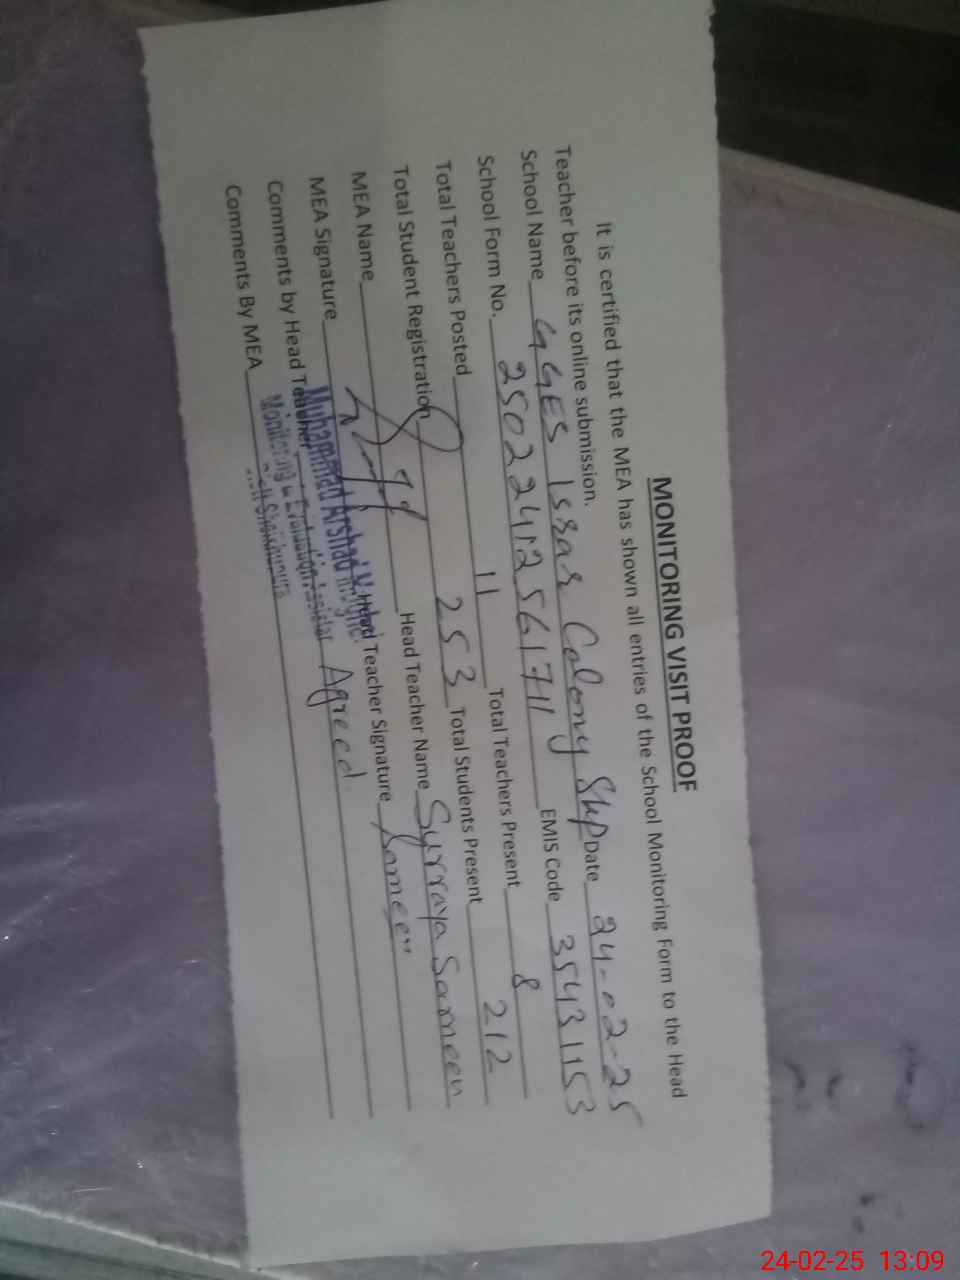 MONITORING VISIT PROOF
It is certified that the MEA has shown all entries of the School Monitoring Form to the Head
Teacher before its online submission.
School Name GGES Issar Colony Skp Date 24-02-25
School Form No. 25022412561711 EMIS Code 35431153
Total Teachers Posted 11 Total Teachers Present 8
Total Student Registration 253 Total Students Present 212
MEA Name Head Teacher Name Surraya Sameen
MEA Signature Head Teacher Signature Sameen
Muhammad Arshad
Comments by Head Teacher Agreed.
Monitoring & Evaluation Assistar
Comments By MEA
24-02-25 13:09